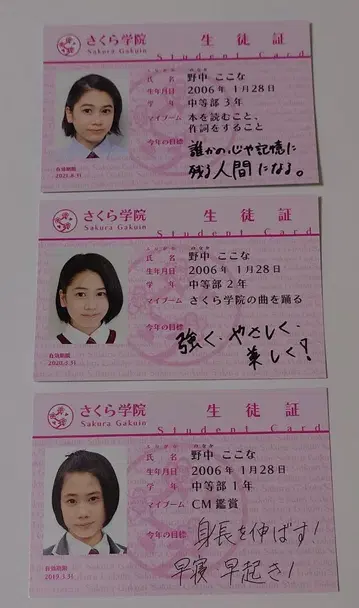 さくら学院
Sakura Gakuin
生徒証
Student Card
氏 名 野中 ここな
生年月日 2006年 1月28日
学 年 中等部3年
マイブーム 本を読むこと、
作詞をすること
今年の目標 誰かの心や記憶に
残る人間になる。
有効期限
2021.8.31
さくら学院
Sakura Gakuin
生徒証
Student Card
氏 名 野中 ここな
生年月日 2006年 1月28日
学 年 中等部2年
マイブーム さくら学院の曲を踊る
今年の目標 強く、やさしく、
美しく?
有効期限
2020.3.31
さくら学院
Sakura Gakuin
生徒証
Student Card
氏 名 野中 ここな
生年月日 2006年 1月28日
学 年 中等部1年
マイブーム CM鑑賞
今年の目標 身長を伸ばす!
早寝 早起き!
有効期限
2019.3.31